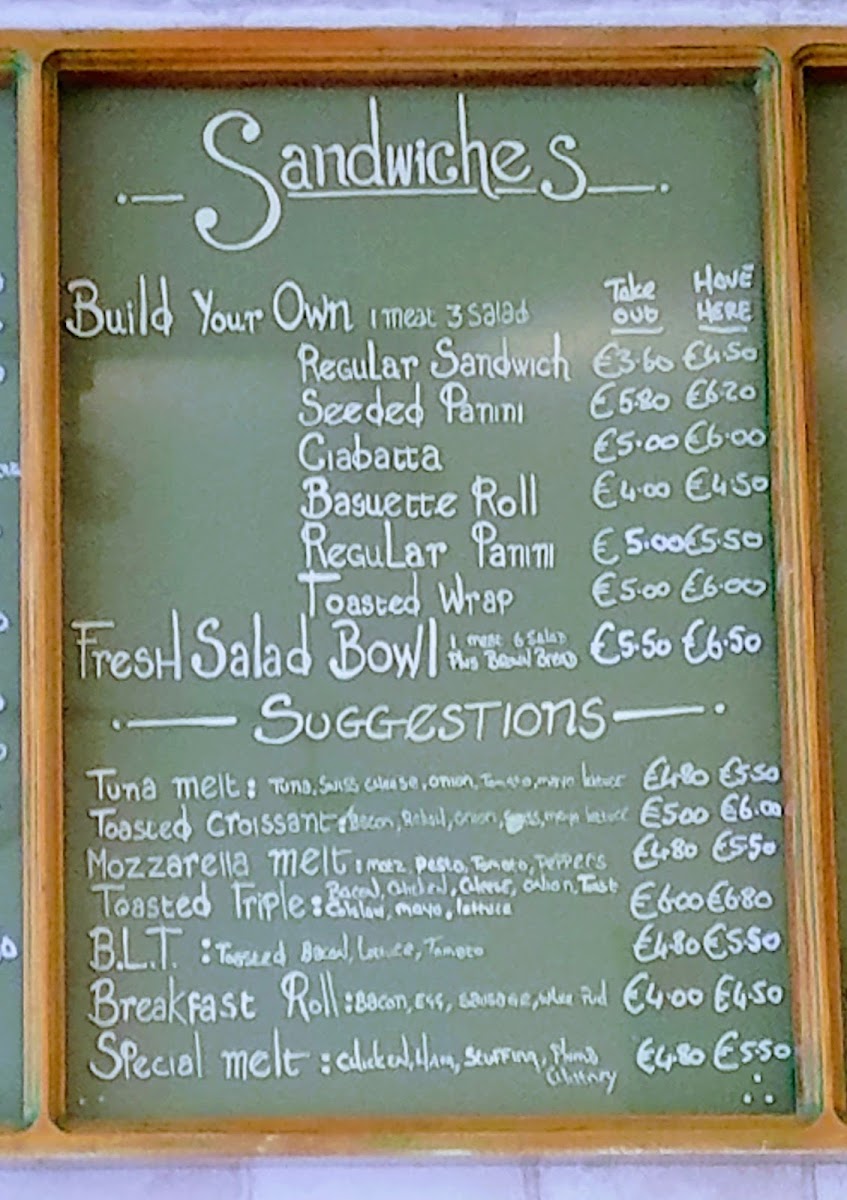 Sandwiches
Build Your Own 1 meat 3 Salad Take Out Have Here
Regular Sandwich €3.60 €4.50
Seeded Panini €5.80 €6.20
Ciabatta €5.00 €6.00
Baguette Roll €4.00 €4.50
Regular Panini €5.00 €5.50
Toasted Wrap €5.00 €6.00
Fresh Salad Bowl 1 meat 6 Salad Plus Brown Bread €5.50 €6.50
Suggestions
Tuna melt: Tuna, Swiss Cheese, onion, Tomato, mayo lettuce €4.80 €5.50
Toasted Croissant: Bacon, onion, mayo lettuce €5.00 €6.00
Mozzarella melt: mozz, pesto, Tomato, Peppers €4.80 €5.50
Toasted Triple: Bacon, Chicken, Cheese, onion, mayo, lettuce €6.00 €6.80
B.L.T. : Toasted Bacon, Lettuce, Tomato €4.80 €5.50
Breakfast Roll: Bacon, Egg, Sausage, White Pud €4.00 €4.50
Special melt : Chicken, Ham, Stuffing, Chutney €4.80 €5.50